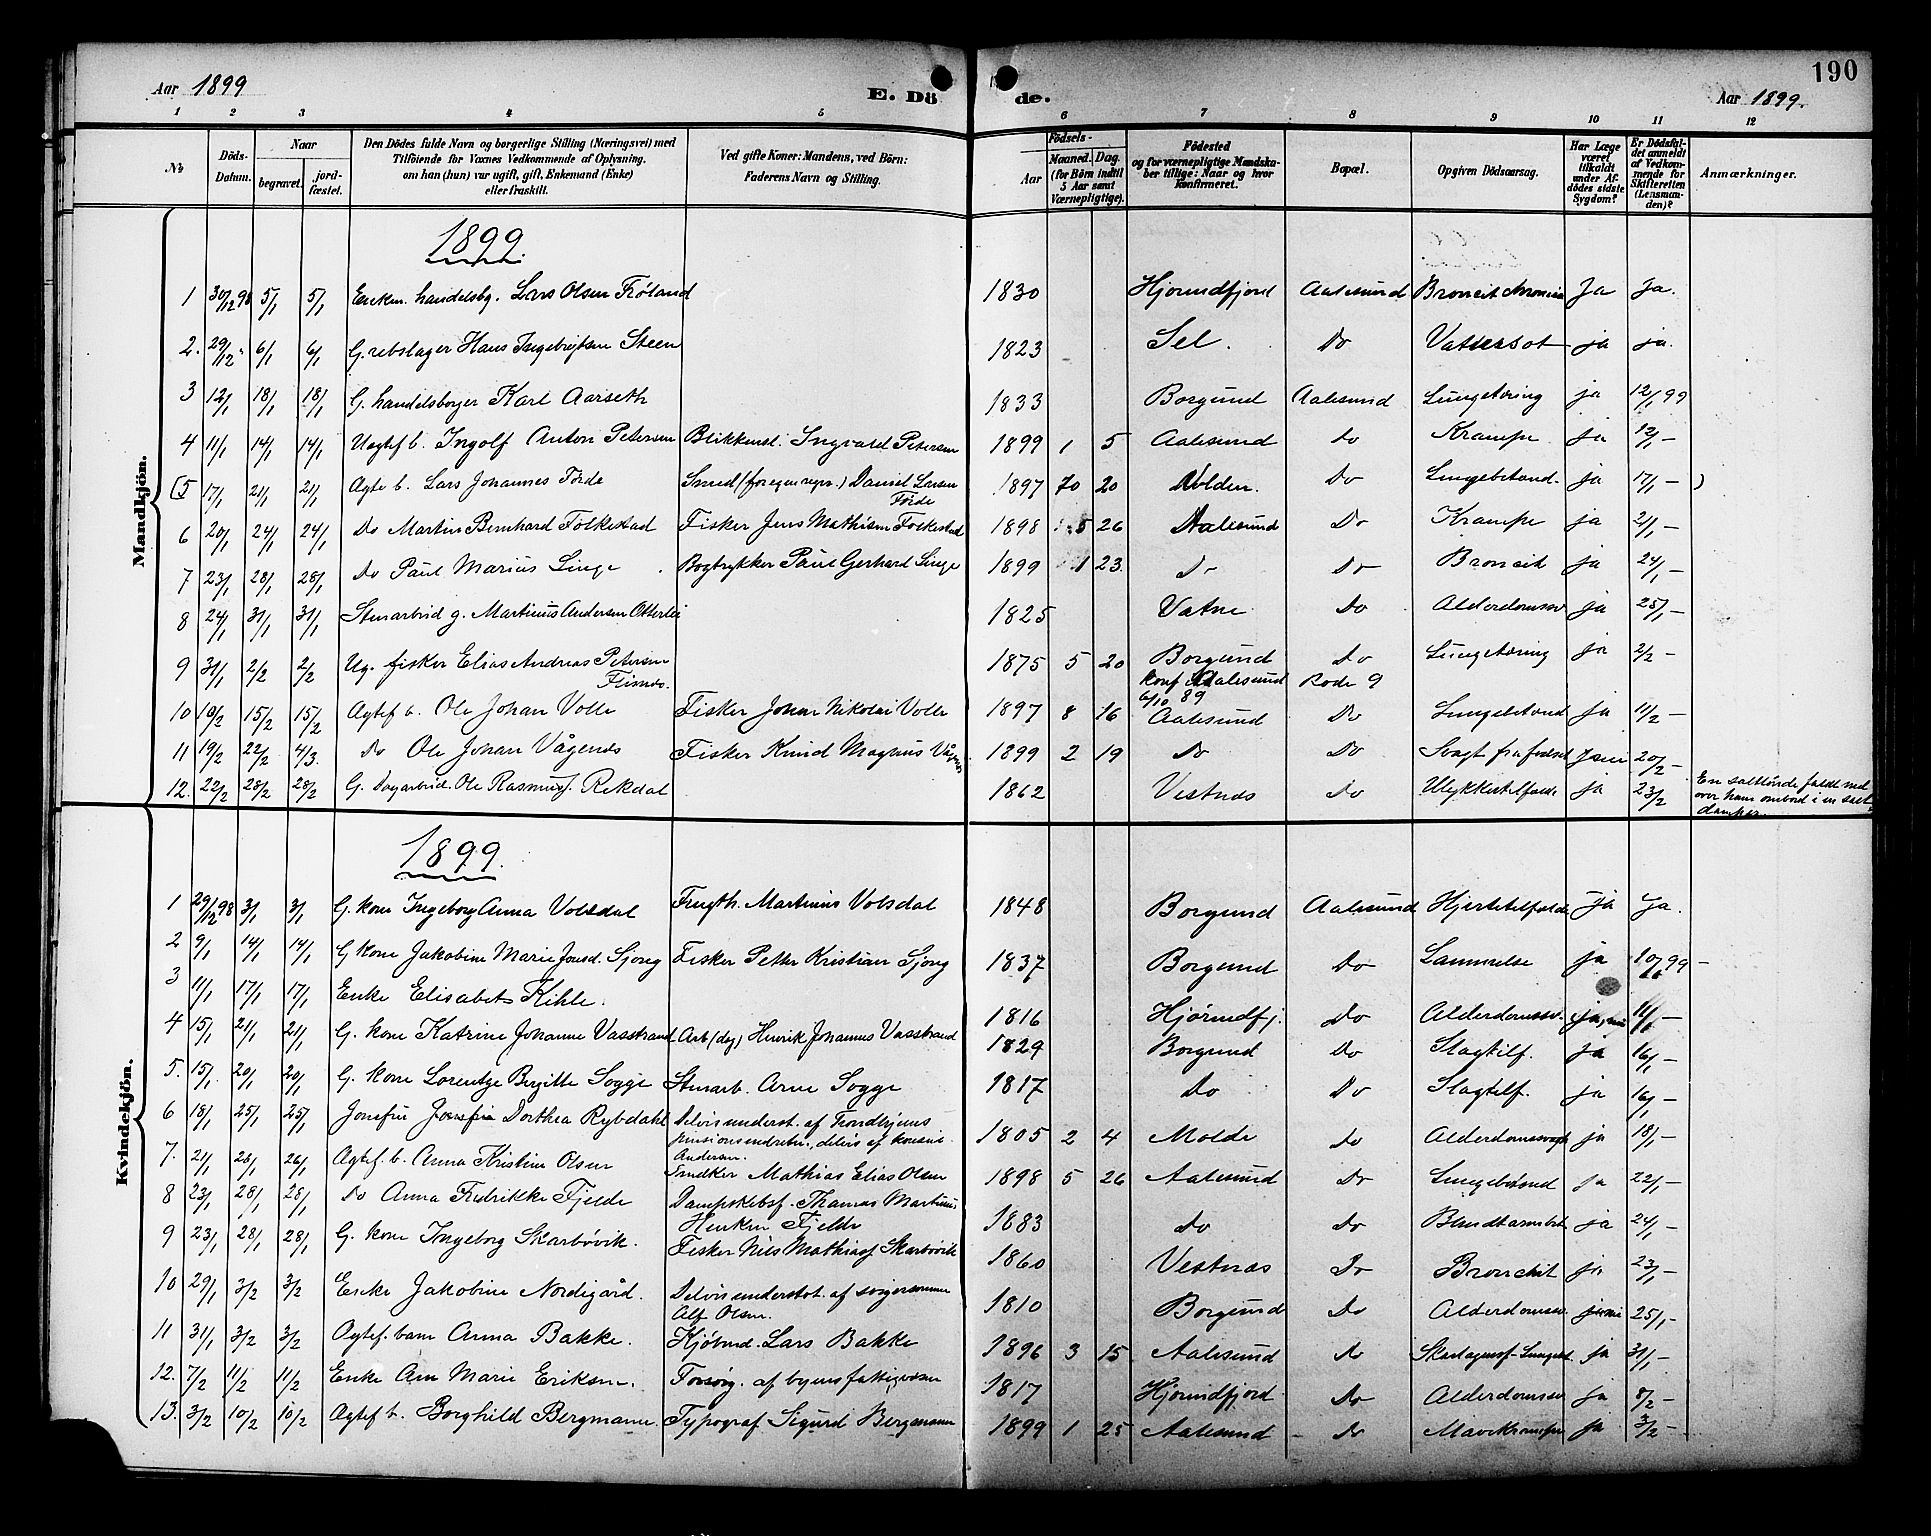 190
Aar 1899
E. Dö de.
Aar 1899.
1 2 3 4 5 6 7 8 9 10 11 12
No
Döds-Datum.
Naar
begravet.
jordfæstet.
Den Dödes fulde Navn og borgerlige Stilling (Næringsvei) med
Tilföiende for Voxnes Vedkommende af Oplysning,
om han (hun) var ugift, gift, Enkemand (Enke)
eller fraskilt.
Ved gifte Koner: Mandens, ved Börn:
Faderens Navn og Stilling.
Födsels-
Aar
Maaned. Dag.
(for Börn indtil
5 Aar samt
Værnepligtige).
Födested
og for værnepligtige Mandskaber tillige: Naar og hvor
konfirmeret.
Bopæl.
Opgiven Dödsaarsag.
Har Læge
været
tilkaldt
under Afdödes sidste
Sygdom?
Er Dödsfaldet anmeldt
af Vedkommende for
Skifteretten
(Lensmanden)?
Anmærkninger.
Mandkjön.
1899.
1 30/12 98 5/1 5/1 Enkem. handelsbg. Lars Olsen Fröland 1830 Hjorundfjord Aalesund Ja Ja.
2. 29/12 " 6/1 6/1 G. rebslager Hans Ingebrigtsen Steen 1823 Sel. Do Vattersot ja ja.
3 12/1 18/1 18/1 G. handelsborger Karl Aarseth 1833 Borgund Aalesund Lungetæring ja 12/1 99
4 11/1 14/1 14/1 Uægtef b. Ingolf Anton Petersen Blikkensl. Ingvald Petersen 1899 1 5 Aalesund Do Krampe ja 12/1 –
(5 17/1 21/1 21/1 Ægte b. Lars Johannes Förde Smed (for egen regn.) Daniel Larsen Förde 1897 10 20 Volden. Do Lungebetænd. ja 17/1 – )
6 20/1 24/1 24/1 Do Martin Bernhard Folkestad Fisker Jens Mathisen Folkestad 1898 5 26 Aalesund Do Krampe ja 21/1 –
7 23/1 28/1 28/1 Do Paul Marius Linge Bogtrykker Paul Gerhard Linge 1899 1 23 Do Do Broncit ja 24/1 –
8 24/1 31/1 31/1 Stenarbeid g. Martinus Andersen Otterlei 1825 Vatne Do Alderdomssv ja 25/1 –
9 31/1 2/2 2/2 Ug. fisker Elias Andreas Petersen 1875 5 20 Borgund Do Lungetæring ja 2/2 –
konf i Aalesund Rode 9
6/10 89
10 10/2 15/2 15/2 Ægtef b. Ole Johan Volle Fisker Johan Nikolai Volle 1897 8 16 Aalesund Do Lungebetænd ja 11/2 –
11 19/2 22/2 4/3. Do Ole Johan Vågenes Fisker Knud Magnus Vågenes 1899 2 19 Do Do Svagt fra födsel 20/2 –
12. 22/2 28/2 28/2 G. Dagarbeid. Ole Rasmusf. Rekdal 1862 Vestnæs Do Ulykkestilfælde ja 23/2 – En salttönde faldt ned
over ham ombord i en salt
damper.
Kvindekjön.
1899.
1 29/12 98 3/1 3/1 G. kone Ingeborg Anna Volsdal Martinus Volsdal 1848 Borgund Aalesund Hjertetilfælde ja Ja.
2 9/1 14/1 14/1 G kone Jakobine Marie Jonsd. Sjong Fisker Petter Kristian Sjong 1837 Borgund Do Lammelse ja 10/1 99 –
3 11/1 17/1 17/1 Enke Elisabet Kihle. 1816 Hjörundfj. Do Alderdomssv. 11/1 –
4 15/1 21/1 21/1 G. kone Katrine Johanne Vasstrand Arb (dag) Henrik Johannes Vasstrand 1829 Borgund Do Slagtilf. ja 16/1 –
5. 15/1 20/1 20/1 G. kone Lorentze Birgitte Sogge Stenarb. Arne Sogge 1817 Do Do Slagtilf. ja 16/1 –
6 18/1 25/1 25/1 Jomfru Dorthea Rybdahl Delvis underst. af Trondhjems 1805 2 4 Molde Do Alderdomssvagh ja 18/1 –
Andersen.
7. 21/1 26/1 26/1 Ægtef. b. Anna Kristine Olsen Snedker Mathias Elias Olsen 1898 5 26 Aalesund Do Lungebetænd ja 22/1 –
8 23/1 28/1 28/1 Do Anna Fredrikke Fjelde Dampskibsf. Thomas Martinus
Fjelde 1883 Do Do Blindtarmbet ja 24/1 –
9 23/1 28/1 28/1 G. kone Ingeborg Skarbövik. Fisker Nils Mathiasf Skarbövik 1860 Vestnæs Do Bronchit ja 23/1 –
10 29/1 3/2 3/2 Enke Jakobine Nordigård. Delvis understöt. af svigersønnen
Alf Olsen. 1810 Borgund Do Alderdomssv 25/1 –
11 31/1 3/2 3/2 Ægtef. barn Anna Bakke. Kjöbmd. Lars Bakke 1896 3 15 Aalesund Do ja 31/1 –
12. 7/2 11/2 11/2 Enke Ane Marie Eriksen. Forsörg. af byens fattigvæsen 1817 Hjörundfjord Do Alderdomssv ja 8/2 –
13. 3/2 10/2 10/2 Ægtef b. Borghild Bergmann. Typograf Sigurd Bergmann 1899 1 25 Aalesund – Do Mavekrampe ja 3/2 –